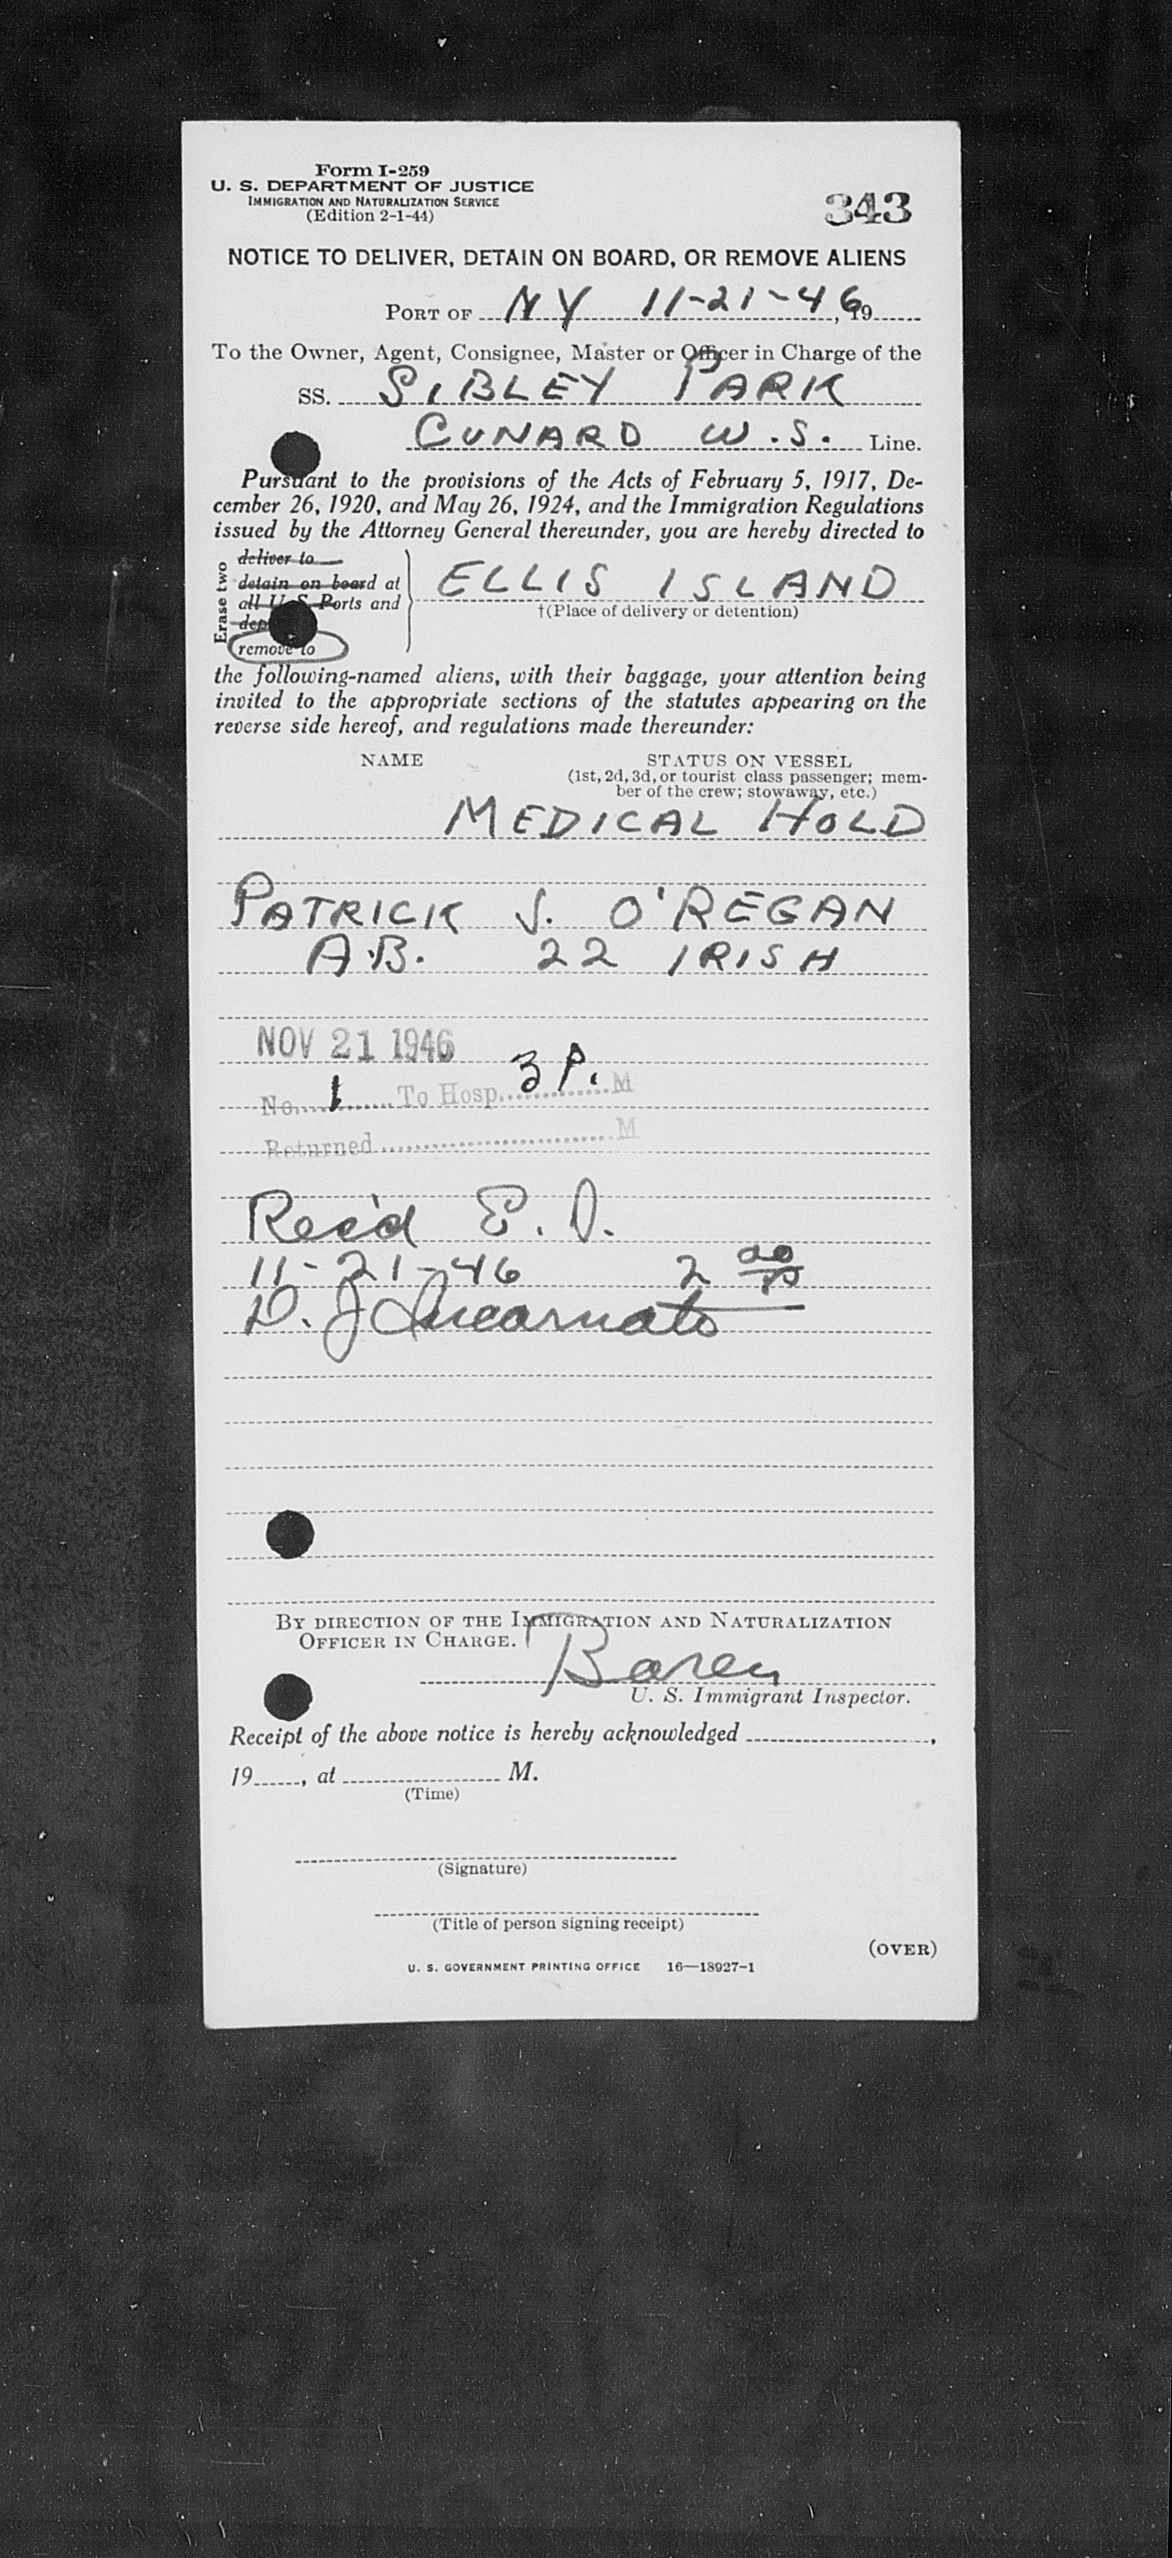 Form I-259
U. S. DEPARTMENT OF JUSTICE
IMMIGRATION AND NATURALIZATION SERVICE
(Edition 2-1-44)
343
NOTICE TO DELIVER, DETAIN ON BOARD, OR REMOVE ALIENS
PORT OF NY 11-21-46, 19
To the Owner, Agent, Consignee, Master or Officer in Charge of the
SS. SIBLEY PARK
CUNARD W.S. Line.
Pursuant to the provisions of the Acts of February 5, 1917, De-
cember 26, 1920, and May 26, 1924, and the Immigration Regulations
issued by the Attorney General thereunder, you are hereby directed to
Erase two
deliver to
detain on board at
all U S Ports and
dep
remove to
ELLIS ISLAND
†(Place of delivery or detention)
the following-named aliens, with their baggage, your attention being
invited to the appropriate sections of the statutes appearing on the
reverse side hereof, and regulations made thereunder:
NAME STATUS ON VESSEL
(1st, 2d, 3d, or tourist class passenger; mem-
ber of the crew; stowaway, etc.)
MEDICAL HOLD
PATRICK J. O'REGAN
A.B. 22 IRISH
NOV 21 1946
No. 1 To Hosp. 3 P. M
Returned M
Rec'd E. I.
11-21-46 2
D. J. Incarnato
BY DIRECTION OF THE IMMIGRATION AND NATURALIZATION
OFFICER IN CHARGE.
U. S. Immigrant Inspector.
Receipt of the above notice is hereby acknowledged ,
19 , at M.
(Time)
(Signature)
(Title of person signing receipt)
(OVER)
U. S. GOVERNMENT PRINTING OFFICE 16—18927-1